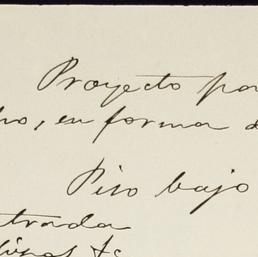 Proyecto pa
ho, en forma d
Piso bajo
trada